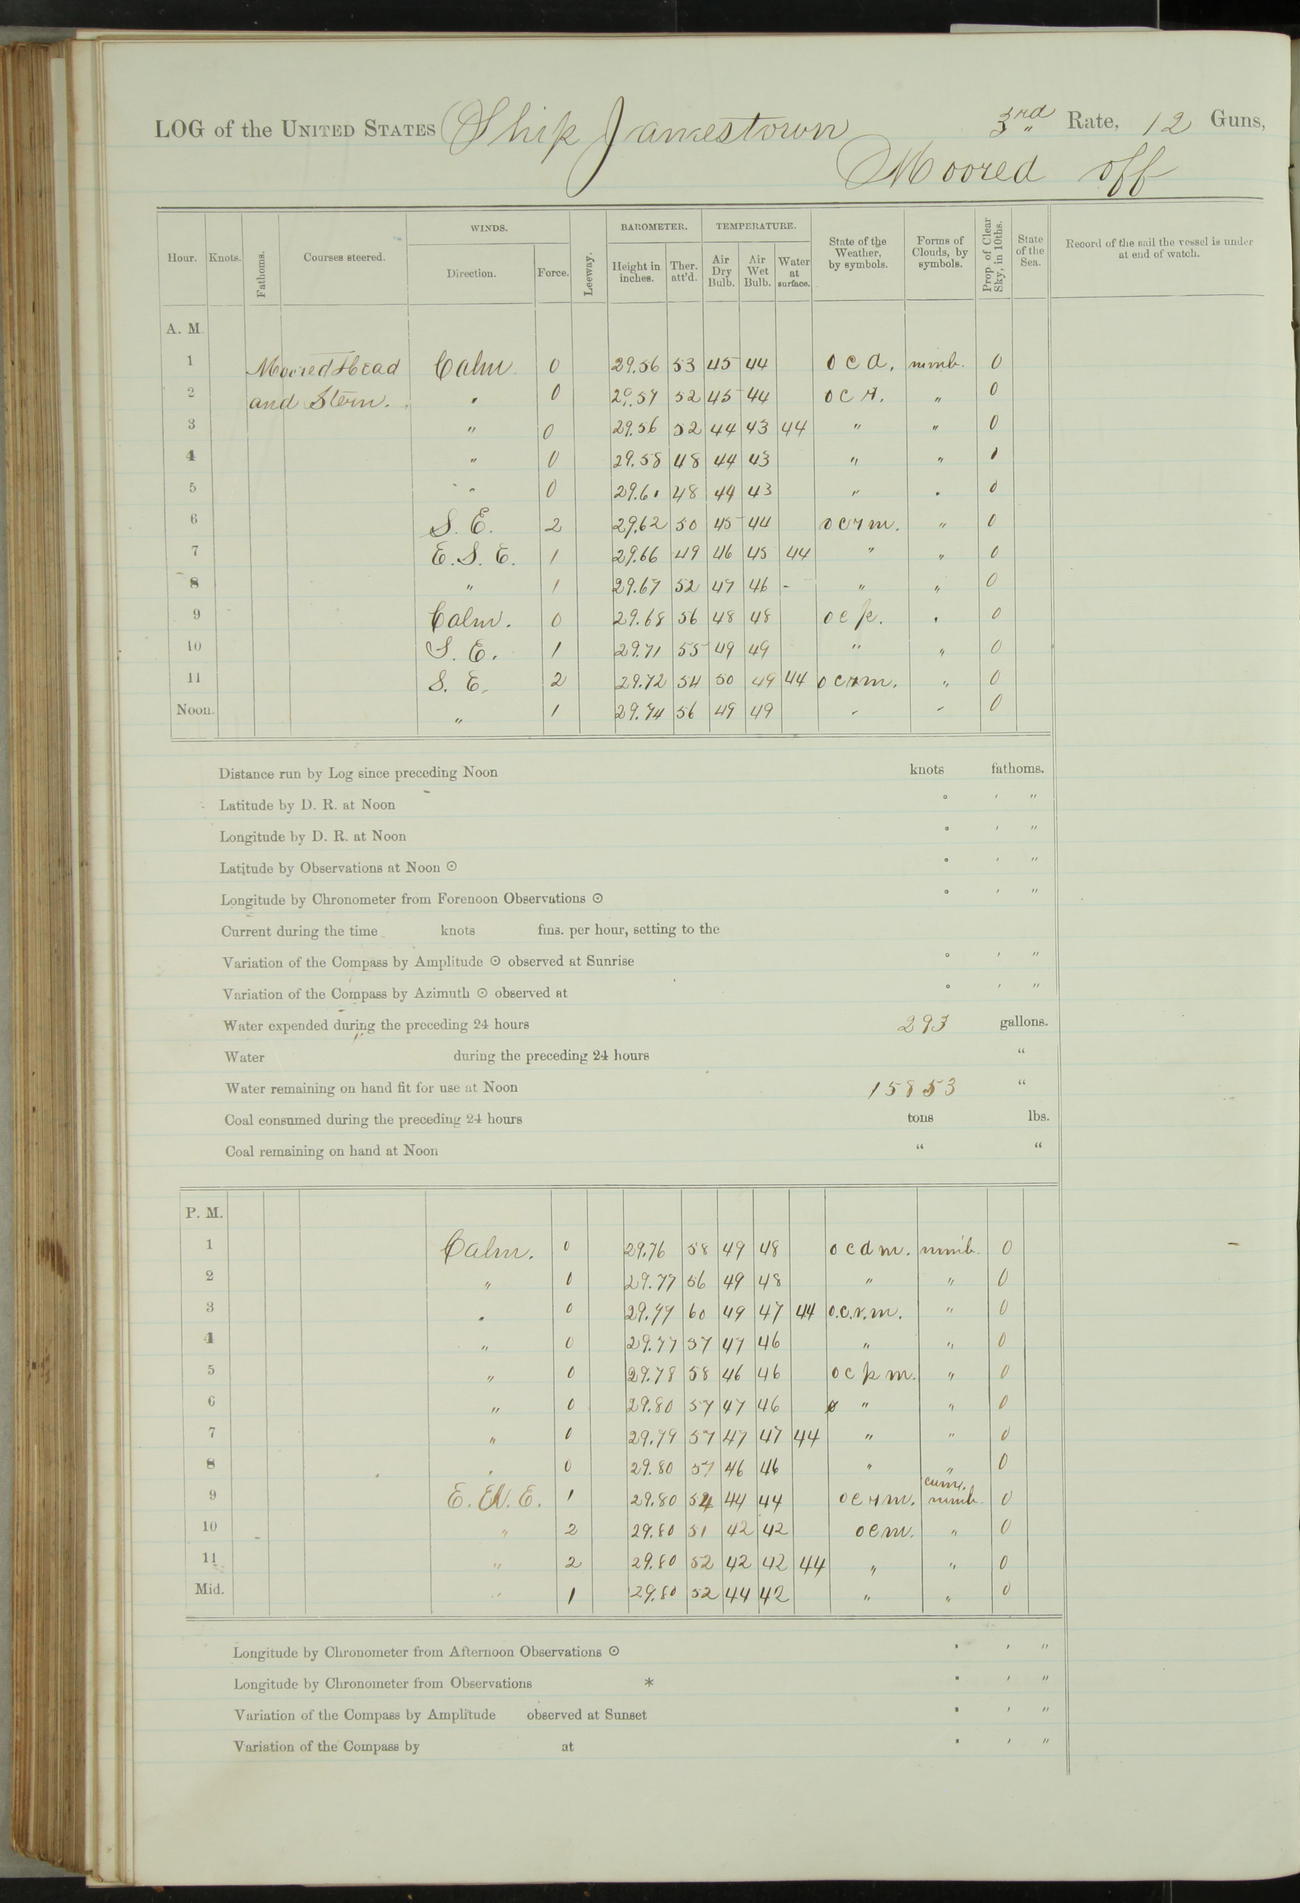 LOG of the UNITED STATES Ship Jamestown 3rd Rate, 12 Guns,
Moored off
Hour. Knots. Fathoms. Courses steered. WINDS. Direction. Force. Leeway. BAROMETER. Height in inches. Ther. att'd. TEMPERATURE. Air Dry Bulb. Air Wet Bulb. Water at surface. State of the Weather, by symbols. Forms of Clouds, by symbols. Prop. of Clear Sky, in 10ths. State of the Sea. Record of the sail the vessel is under at end of watch.
A. M.
1 Moored Head Calm 0 29.56 53 45 44 o c d. nimb. 0
2 and Stern. " 0 29.57 52 45 44 o c r. " 0
3 " 0 29.56 52 44 43 44 " " 0
4 " 0 29.58 48 44 43 " " 0
5 " 0 29.61 48 44 43 " " 0
6 S. E. 2 29.62 50 45 44 o c r m. " 0
7 E. S. E. 1 29.66 49 46 45 44 " " 0
8 " 1 29.67 52 47 46 - " " 0
9 Calm. 0 29.68 56 48 48 o c p. " 0
10 S. E. 1 29.71 55 49 49 " " 0
11 S. E. 2 29.72 54 50 49 44 o c r m. " 0
Noon. " 1 29.74 56 49 49 " " 0
Distance run by Log since preceding Noon knots fathoms.
Latitude by D. R. at Noon ° ' "
Longitude by D. R. at Noon ° ' "
Latitude by Observations at Noon ⊙ ° ' "
Longitude by Chronometer from Forenoon Observations ⊙ ° ' "
Current during the time knots fms. per hour, setting to the
Variation of the Compass by Amplitude ⊙ observed at Sunrise ° ' "
Variation of the Compass by Azimuth ⊙ observed at ° ' "
Water expended during the preceding 24 hours 293 gallons.
Water during the preceding 24 hours "
Water remaining on hand fit for use at Noon 15853 "
Coal consumed during the preceding 24 hours tons lbs.
Coal remaining on hand at Noon " "
P. M.
1 Calm. 0 29.76 58 49 48 o c d m. nimb. 0
2 " 0 29.77 56 49 48 " " 0
3 " 0 29.77 60 49 47 44 o.c.r.m. " 0
4 " 0 29.77 57 47 46 " " 0
5 " 0 29.78 58 46 46 o c p m. " 0
6 " 0 29.80 57 47 46 " " 0
7 " 0 29.79 57 47 47 44 " " 0
8 " 0 29.80 57 46 46 " " 0
9 E. N. E. 1 29.80 54 44 44 o c r m. cum. nimb. 0
10 " 2 29.80 51 42 42 o c m. " 0
11 " 2 29.80 52 42 42 44 " " 0
Mid. " 1 29.80 52 44 42 " " 0
Longitude by Chronometer from Afternoon Observations ⊙ ° ' "
Longitude by Chronometer from Observations * ° ' "
Variation of the Compass by Amplitude observed at Sunset ° ' "
Variation of the Compass by at ° ' "